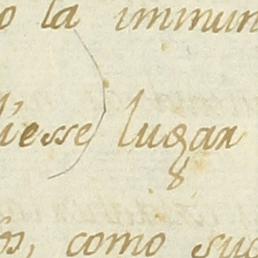 o la immun
iesse) lugar
os, como suc